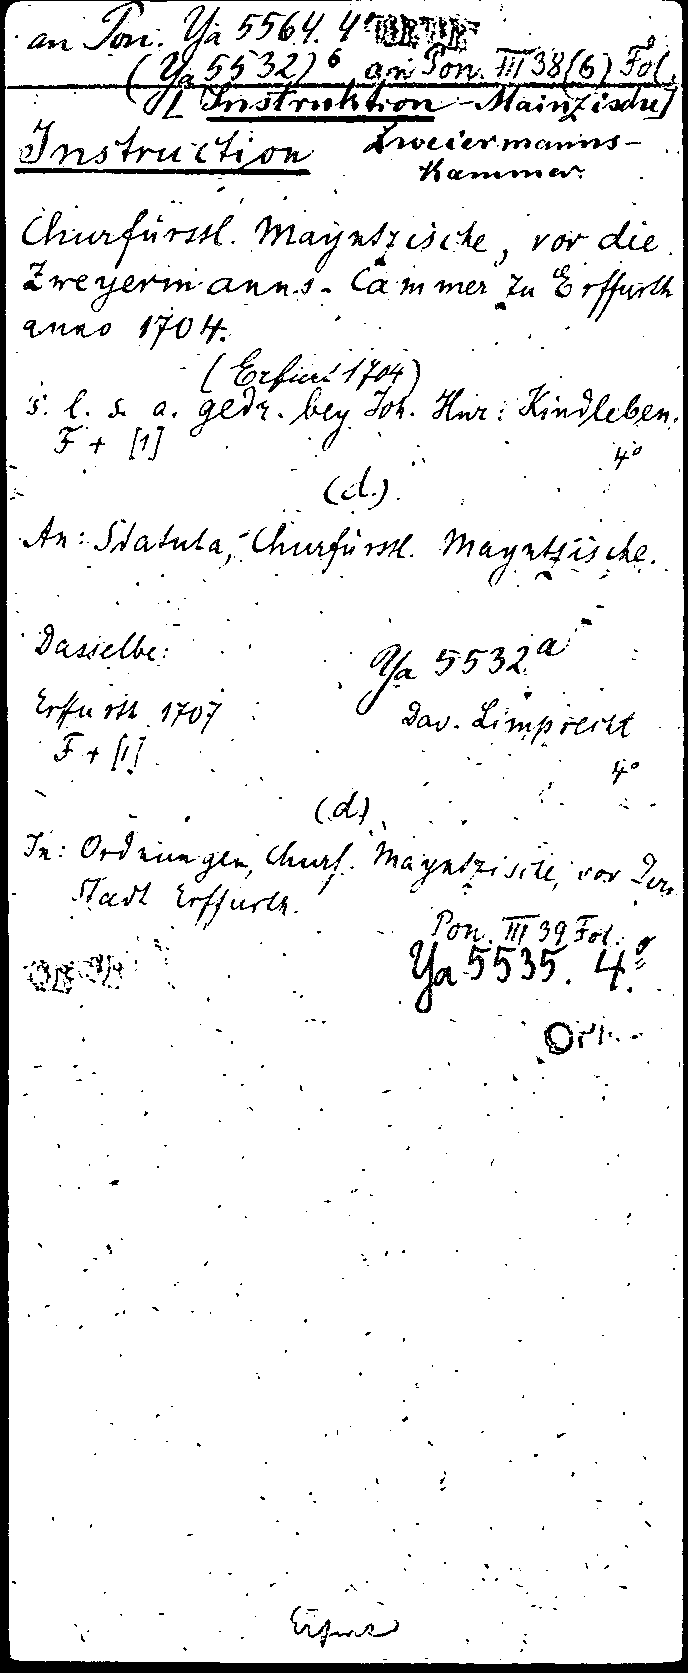 an Pon. Ya 5564. 4°
(Ya 5532) 6 an Pon. III 38(6) Fol.
[Instruktion - Mainzische]
Instruction Zweiermanns-
Kammer.
Churfürstl. Mayntzische, vor die
Zweyermanns-Cammer zu Erffurth
anno 1704.
(Erfurt 1704)
s. l. s. a. gedr. bey Joh. Hnr: Kindleben.
F + [1] 4°
(d.)
An: Statuta, Churfürstl. Mayntzische.
Dasselbe: Ya 5532 a
Erffurth 1707 Dav. Limprecht
F + [1] 4°
(d.)
In: Ordnungen, Churf. Mayntzische, vor Dero
Stadt Erffurth.
Pon. III 39 Fol.
Ya 5535. 4°
Erfurt